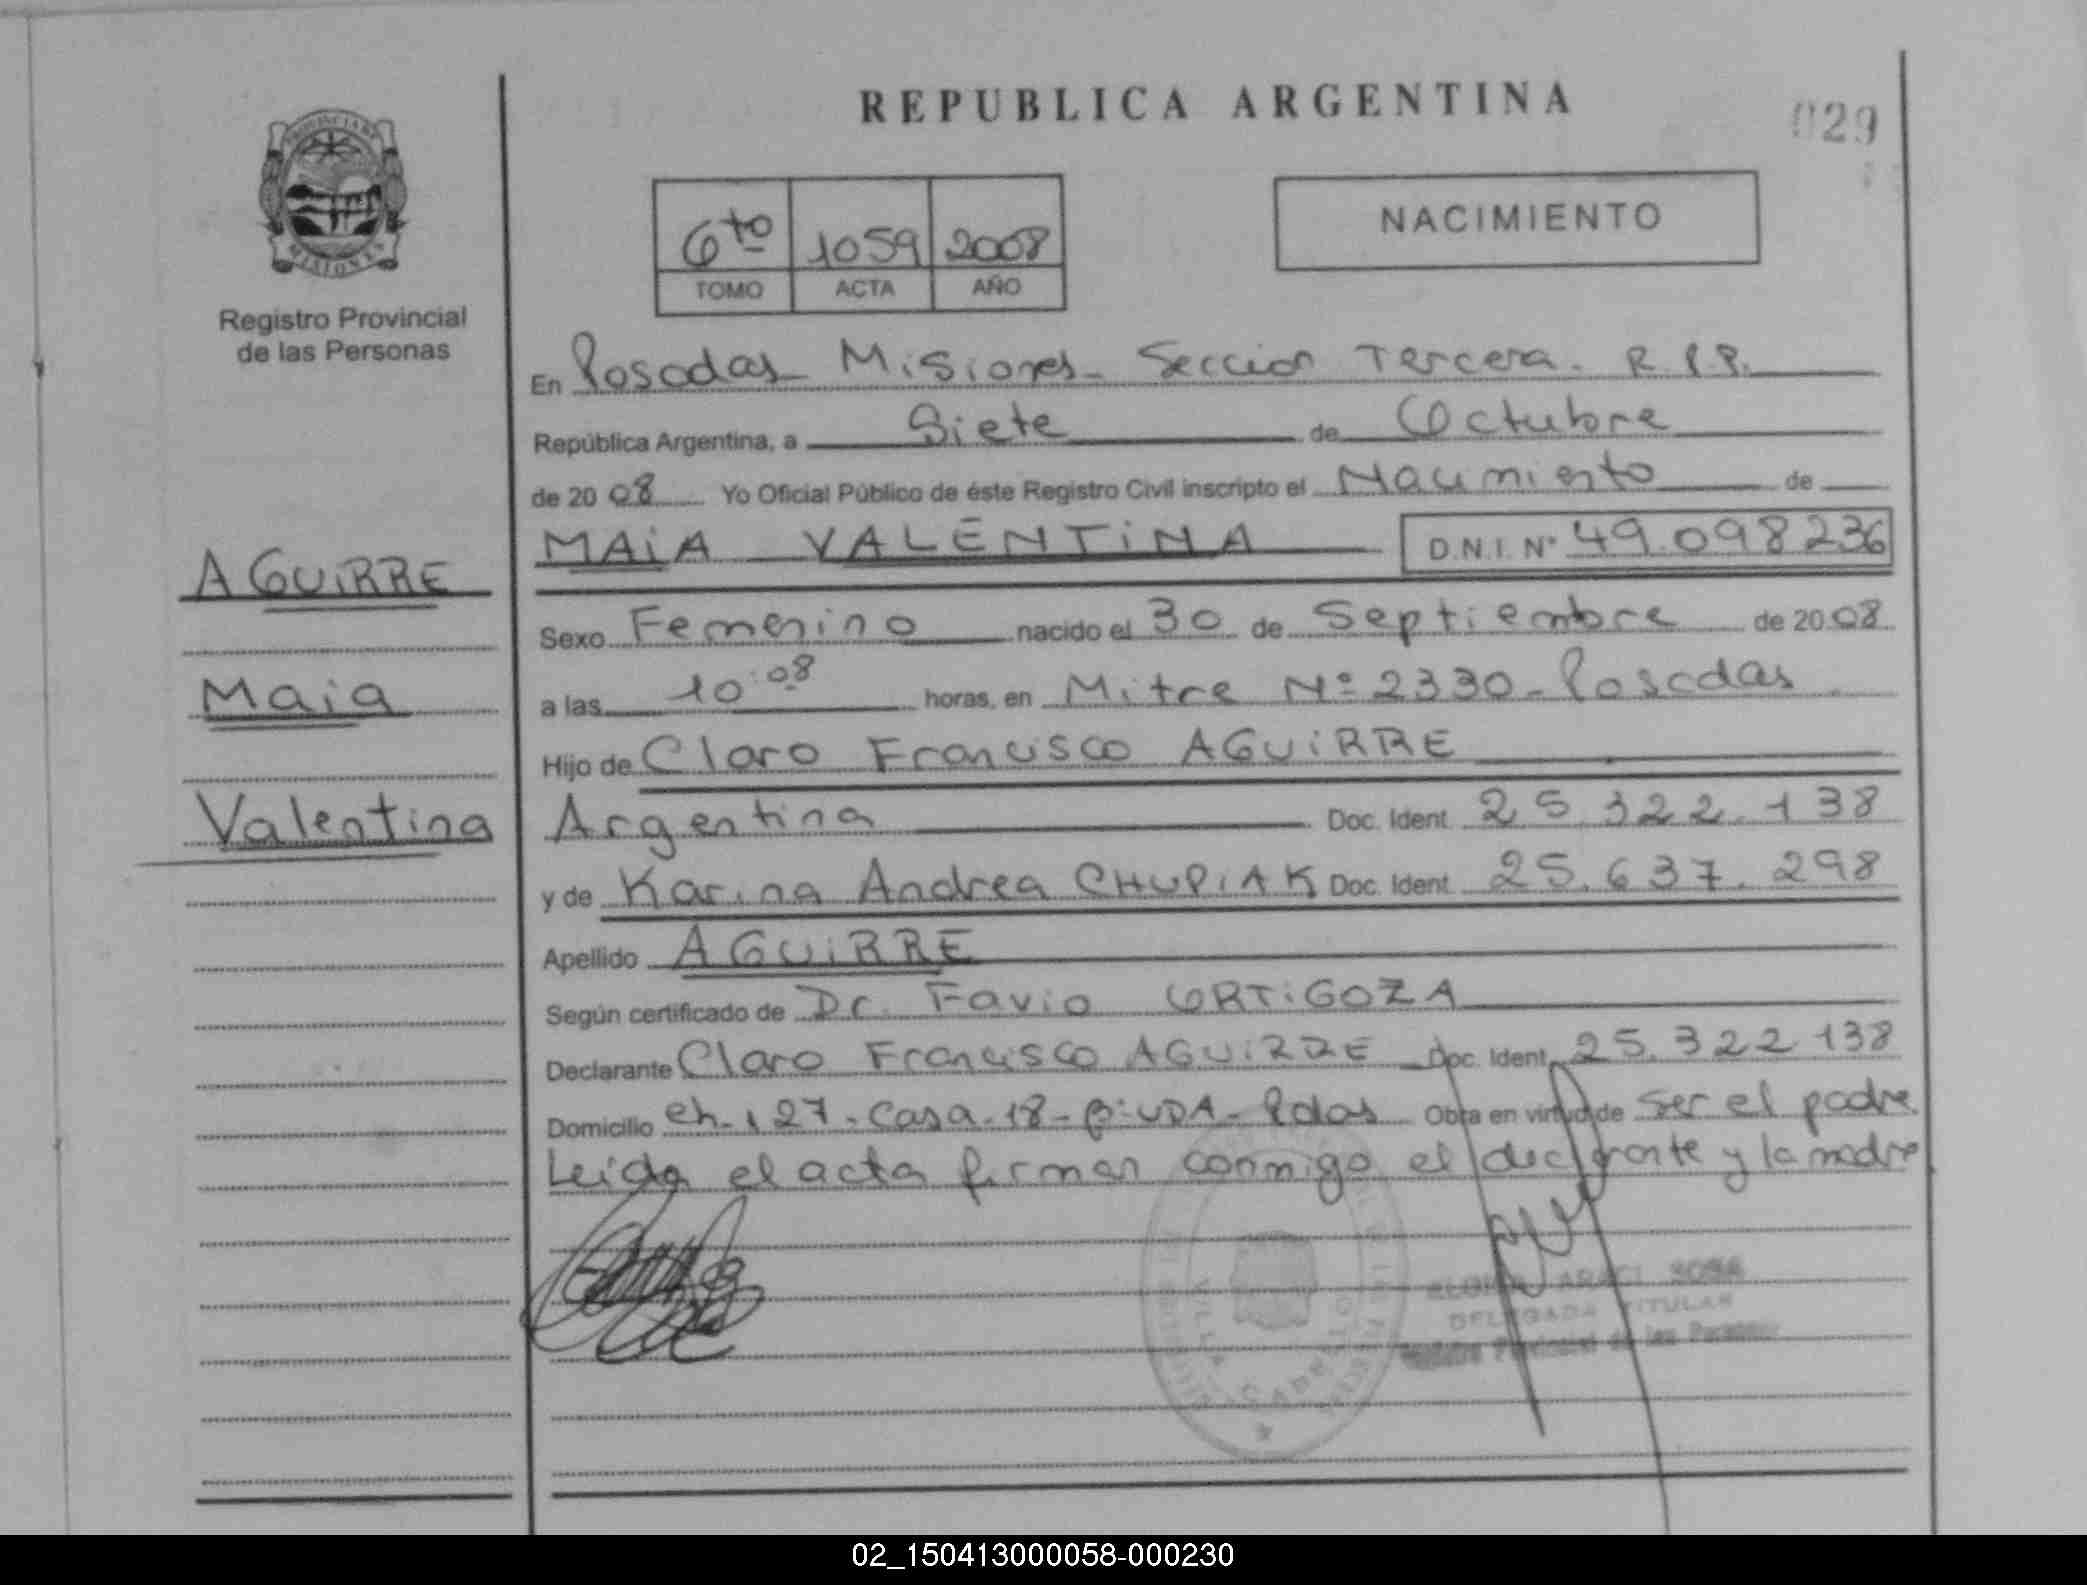 REPUBLICA ARGENTINA
029
PROVINCIA DE
MISIONES
Registro Provincial
de las Personas
6to 1059 2008
TOMO ACTA AÑO
NACIMIENTO
En Posadas - Misiones - Seccion Tercera. R.P.P.
República Argentina, a Siete de Octubre
de 2008 Yo Oficial Público de éste Registro Civil inscripto el Nacimiento de
MAIA VALENTINA D.N.I. Nº 49.098236
AGUIRRE
Maia
Valentina
Sexo Femenino nacido el 30 de Septiembre de 2008
a las 10:08 horas, en Mitre Nº 2330 - Posadas
Hijo de Claro Francisco AGUIRRE
Argentina Doc. Ident. 25.322.138
y de Karina Andrea CHUPIAK Doc. Ident. 25.637.298
Apellido AGUIRRE
Según certificado de Dr. Favio ORTIGOZA
Declarante Claro Francisco AGUIRRE Doc. Ident. 25.322138
Domicilio ch. 127 - Casa - 18 - Bº UDA - Pdas Obra en virtud de ser el padre
Leida el acta firman conmigo el declarante y la madre
VILLA CABELLO
ARACI SOSA
DELEGADA TITULAR
Registro Provincial de las Personas
02_150413000058-000230